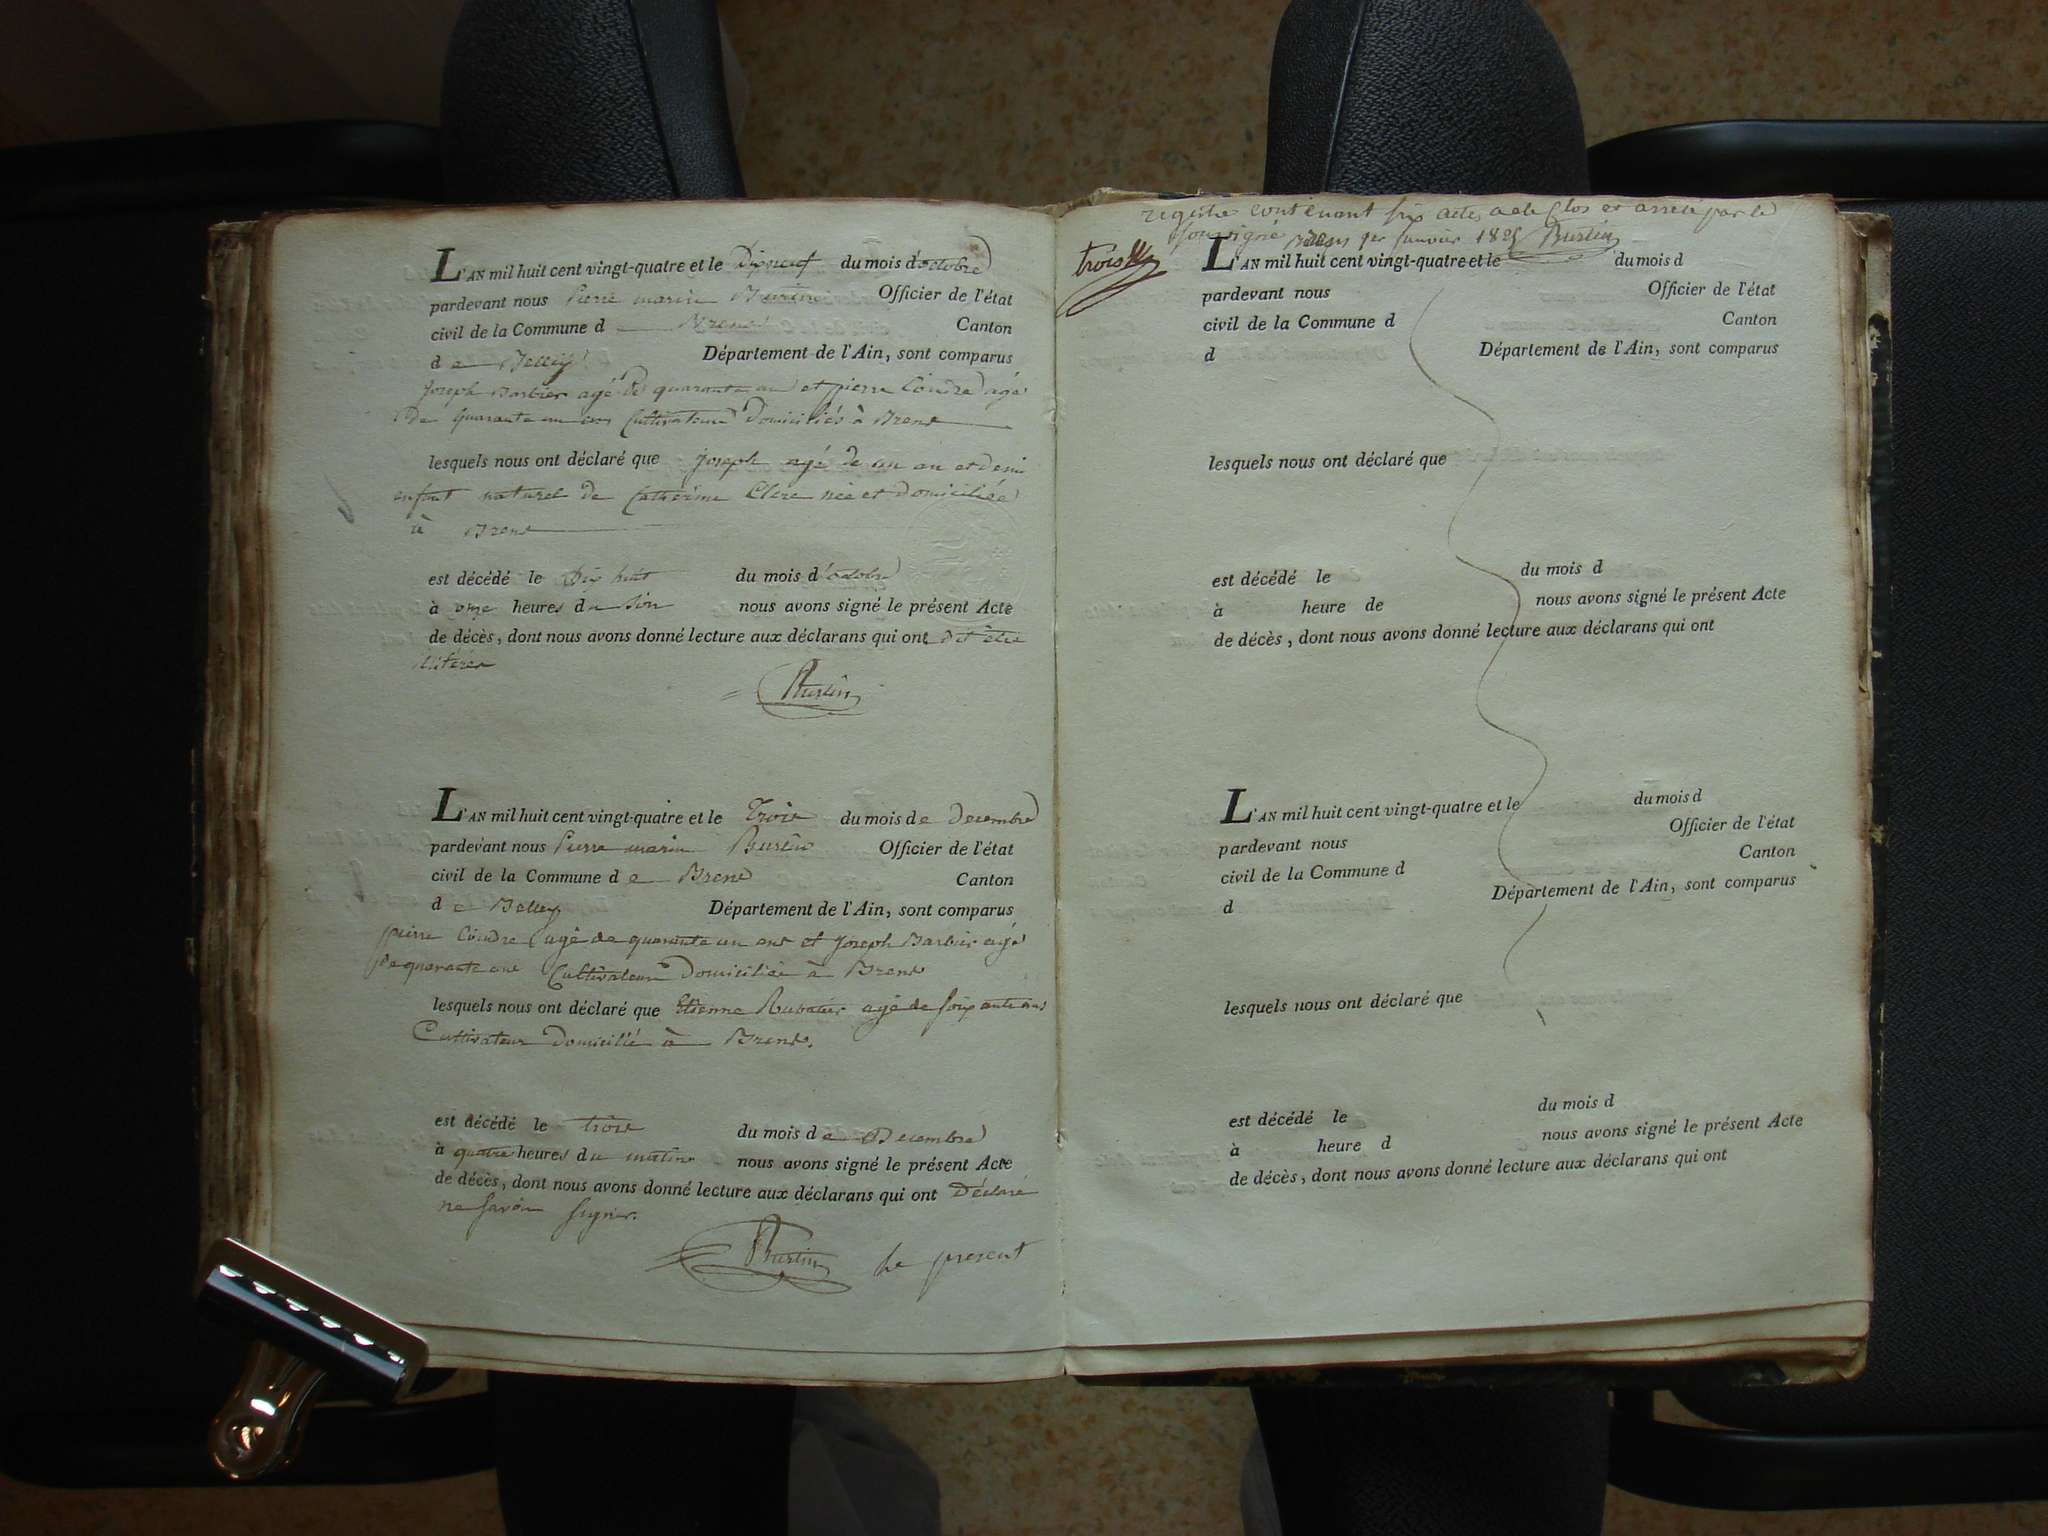 L'AN mil huit cent vingt-quatre et le Dixneuf du mois d'octobre
pardevant nous Pierre marin Burtin Officier de l'état
civil de la Commune de Brens Canton
de Belley Département de l'Ain, sont comparus
Joseph Barbier agé de quarante ans et pierre Coudre agé
De quarante un ans Cultivateurs Domiciliés à Brens
lesquels nous ont déclaré que Joseph agé de un an et demi
enfant naturel de Catherine Clere née et domiciliée
à Brens
est décédé le Dix huit du mois d'octobre
à onze heures du soir nous avons signé le présent Acte
de décès, dont nous avons donné lecture aux déclarans qui ont dit être
illiterés
Burtin
L'AN mil huit cent vingt-quatre et le Trois du mois de Decembre
pardevant nous Pierre marin Burtin Officier de l'état
civil de la Commune de Brens Canton
de Belley Département de l'Ain, sont comparus
pierre Coudre agé de quarante un ans et Joseph Barbier agé
de quarante ans Cultivateurs Domiciliés à Brens
lesquels nous ont déclaré que Etienne Rubatier agé de soixante ans
Cultivateur Domicilié à Brens.
est décédé le trois du mois de Decembre
à quatre heures du matin nous avons signé le présent Acte
de décès, dont nous avons donné lecture aux déclarans qui ont Déclaré
ne savoir signer.
Burtin Le present
registre contenant six actes a été Clos et arreté par le
soussigné Brens 1er Janvier 1825 Burtin
trois
L'AN mil huit cent vingt-quatre et le du mois d
pardevant nous Officier de l'état
civil de la Commune d Canton
d Département de l'Ain, sont comparus
lesquels nous ont déclaré que
est décédé le du mois d
à heure de nous avons signé le présent Acte
de décès, dont nous avons donné lecture aux déclarans qui ont
L'AN mil huit cent vingt-quatre et le du mois d
pardevant nous Officier de l'état
civil de la Commune d Canton
d Département de l'Ain, sont comparus
lesquels nous ont déclaré que
est décédé le du mois d
à heure d nous avons signé le présent Acte
de décès, dont nous avons donné lecture aux déclarans qui ont